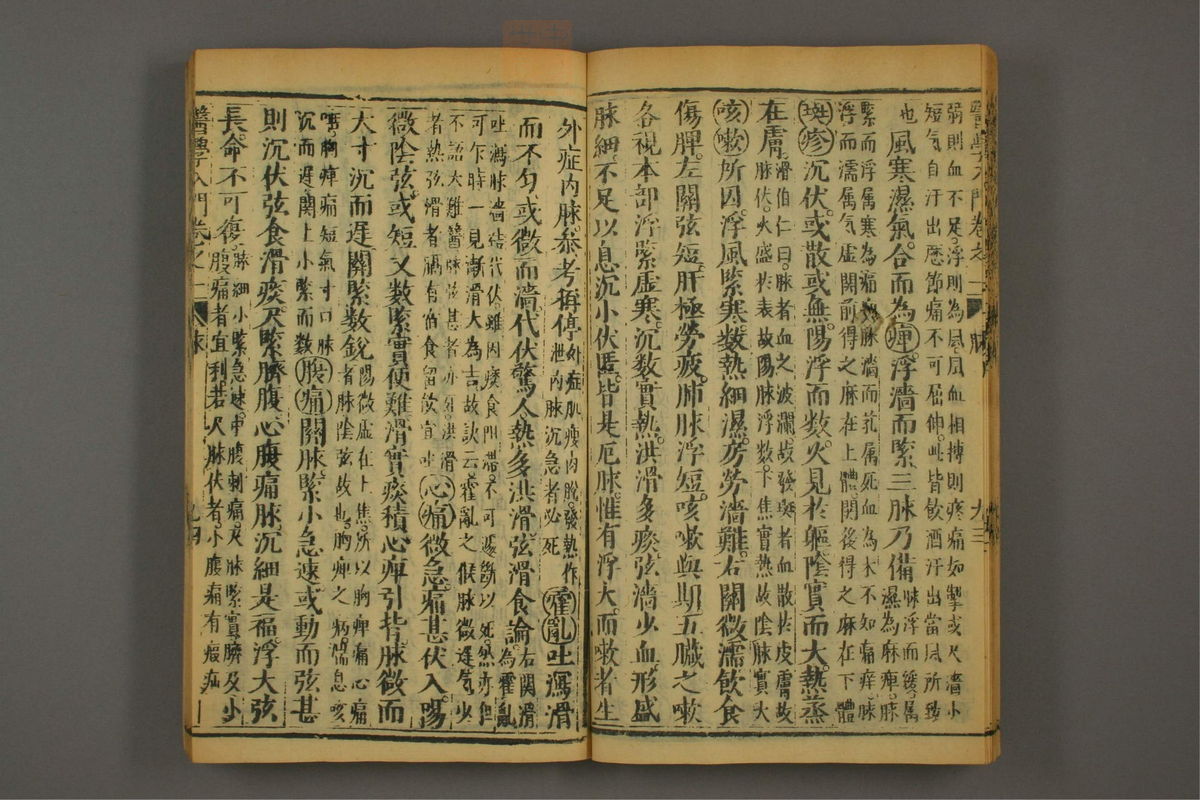 醫學入門卷之二 脉 九三
弱則血不足浮則為風風血相搏則疼痛如掣或尺濇小
短氣自汗出歷節痛不可屈伸此皆飲酒汗出當風所致
也風寒濕氣合而為痺浮濇而緊三脉乃備濕為麻痺脉浮而緩属
緊而浮属寒為痛脉濇而芤属死血為木不知痛痒脉
浮而濡属气虛關前得之麻在上體關後得之麻在下體
斑疹沉伏或散或無陽浮而数火見於軀陰實而大熱蒸
在膚滑伯仁曰脉者血之波瀾故發斑者血散於皮膚故
脉伏火盛於表故陽脉浮数下焦實熱故陰脉實大
咳嗽所因浮風緊寒数熱細濕房勞濇難右關微濡飲食
傷脾左關弦短肝極勞疲肺脉浮短咳嗽與期五臟之嗽
各視本部浮緊虛寒沉数實熱洪滑多痰弦濇少血形盛
脉細不足以息沉小伏匿皆是厄脉惟有浮大而嗽者生
外症内脉參考再停外症肌瘦肉脫發熱作
泄内脉沉急者必死霍亂吐瀉滑
而不匀或微而濇代伏驚人熱多洪滑弦滑食論右關滑
為霍亂
吐瀉脉濇結代伏雖因痰食阻滯不可遽斷以死然亦但
可乍時一見漸滑大為吉故訣云霍亂之候脉微遲气少
不語大難醫脉弦甚者亦 洪滑
者熱弦滑者膈有宿食留飲宜吐心痛微急痛甚伏入陽
微陰弦或短又数緊實便難滑實痰積心痺引背脉微而
大寸沉而遲關緊数銳陽微虛在上焦所以胸痺痛心痛
者脉陰弦故也胸痺之病喘息咳
唾胸痺痛短氣寸口脉
沉而遲關上小緊而数腹痛關脉緊小急速或動而弦甚
則沉伏弦食滑痰尺緊臍腹心腹痛脉沉細是福浮大弦
長命不可復脉細小緊急速中腹刺痛尺脉緊實臍及小
腹痛者宜利若尺脉伏者小腹痛有瘕疝
醫學入門卷之二 脉 九四